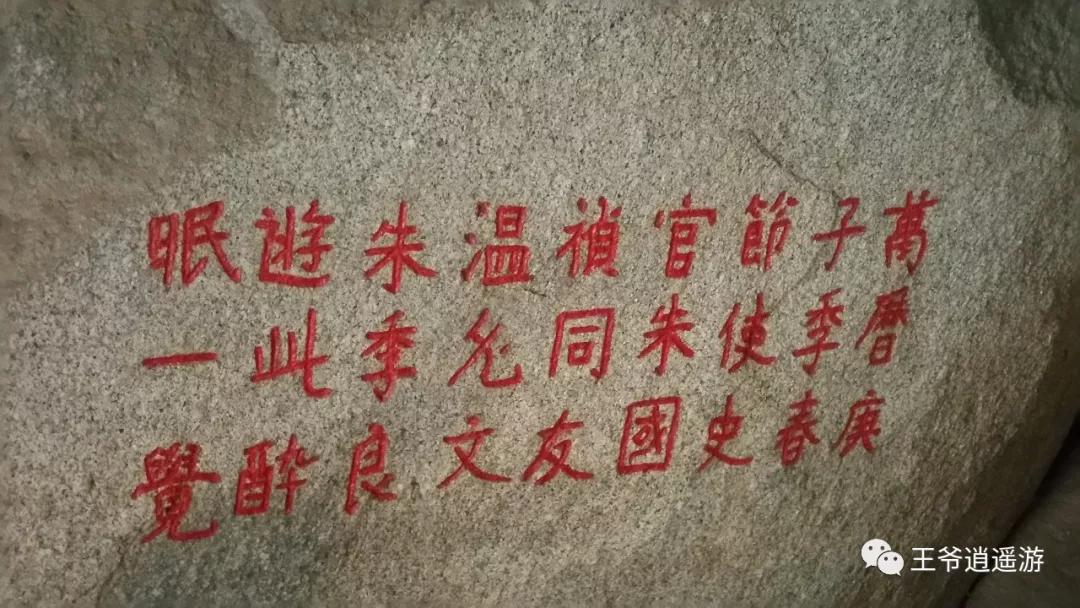 萬曆庚
子季春
節使史
官朱國
禎同友
温允文
朱季良
遊此醉
眠一覺
王爷逍遥游